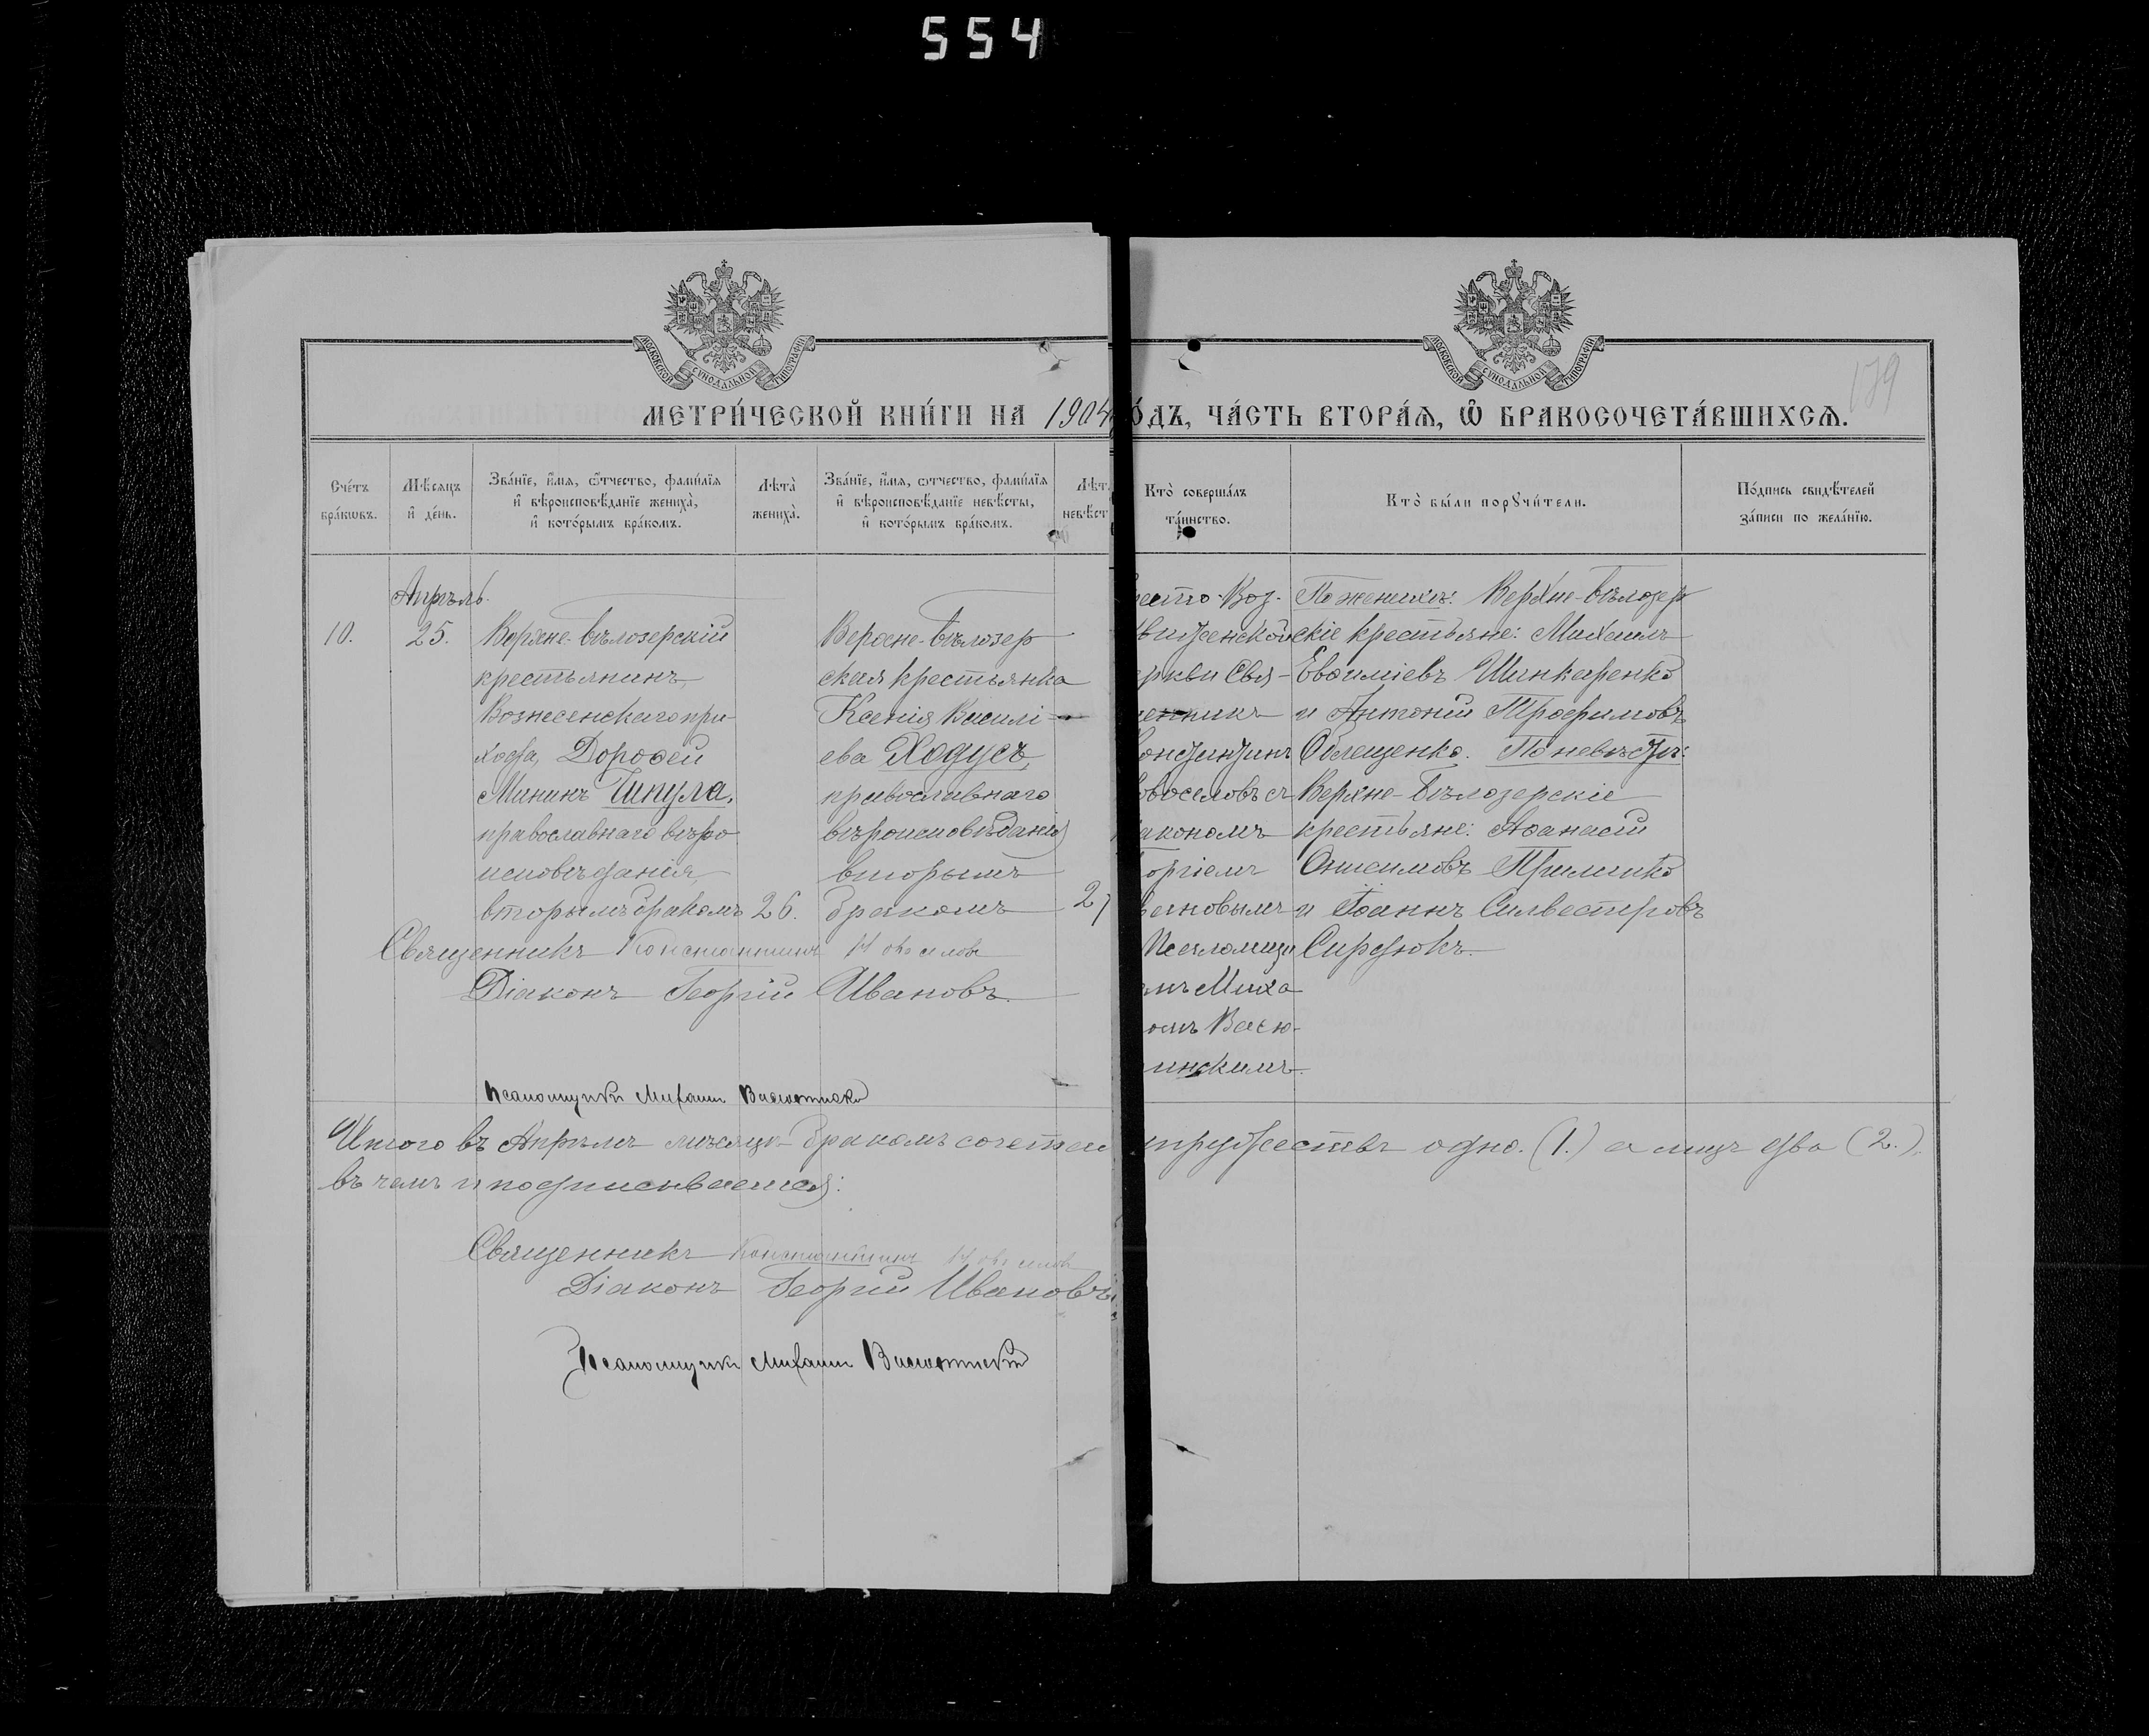 554
МОСКОВСКОЙ СѴНОДАЛЬНОЙ ТИПОГРАФІИ
МОСКОВСКОЙ СѴНОДАЛЬНОЙ ТИПОГРАФІИ
179
МЕТРИ́ЧЕСКОЙ КНИ́ГИ НА 1904 О́ДЪ, ЧА́СТЬ ВТОРА́Я, Ѽ БРАКОСОЧЕТА́ВШИХСЯ.
Сче́тъ бра́кѡвъ.
Мѣ́сяцъ и҆ де́нь.
Зва́нїе, и҆́мя, ѻ҆́тчество, фами́лїя
и҆ вѣроисповѣ́данїе жениха̀,
и҆ кото́рымъ бра́комъ.
Лѣта̀ жениха̀.
Зва́нїе, и҆́мя, ѻ҆́тчество, фами́лїя
и҆ вѣроисповѣ́данїе невѣ́сты,
и҆ кото́рымъ бра́комъ.
Лѣт
невѣст
Кто̀ соверша́лъ
та́инство.
Кто̀ бы́ли порꙋчи́тели.
По́дпись свидѣ́телей
за́писи по жела́нїю.
Апрѣль.
10.
25.
Верхне-Бѣлозерскій
крестьянинъ,
Вознесенскаго при-
хода, Дороѳей
Мининъ Шпула,
православнаго вѣро
исповѣданія,
вторымъ бракомъ
26.
Верхне-Бѣлозер
ская крестьянка
Ксенія Василі-
ева Ходусъ,
православнаго
вѣроисповѣданія
вторымъ
бракомъ
2
ресто-Воз-
движенской
еркви Свя-
щенникъ
онстантинъ
овоселовъ съ
аконом
оргіемъ
вановымъ
Псаломщи
мъ Миха
омъ Васю-
инскимъ.
По женихѣ: Верхне-Бѣлозер
скіе крестьяне: Михаилъ
Евѳиміевъ Шинкаренко
и Антоній Трофимовъ
Облещенко. По невѣстѣ:
Верхне-Бѣлозерскіе
крестьяне: Аѳанасій
Онисимовъ
и Іоаннъ Силвестровъ
Сирдюкъ.
Священникъ Константинъ Новоселовъ
Діаконъ Георгій Ивановъ.
Псаломщикъ Михаилъ
Итого въ Апрѣлѣ мѣсяцѣ бракомъ сочетан упружествъ одно. (1.) а лицъ два (2.),
въ чемъ и подписываемся:
Священникъ Константинъ Новоселовъ
Діаконъ Георгій Ивановъ
Псаломщикъ Михаилъ